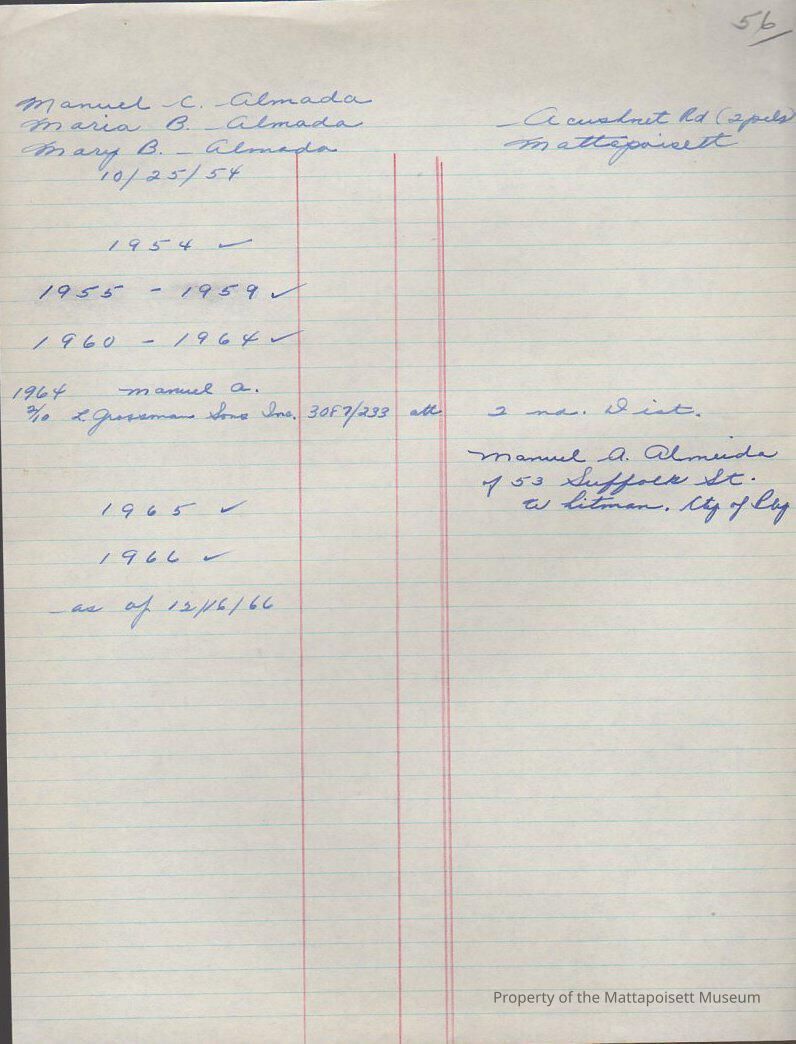 56
Manuel C. Almada
Maria B. Almada
Mary B. Almada
10/25/54
Acushnet Rd (2 pcls)
Mattapoisett
1954 ✓
1955 - 1959 ✓
1960 - 1964 ✓
1964 Manuel A.
2/10 L. Grossman Sons Inc. 3087/233 att 2 nd. Dist.
Manuel A. Almeida
of 53 Suffolk St.
Whitman. Cty of Ply
1965 ✓
1966 ✓
as of 12/16/66
Property of the Mattapoisett Museum